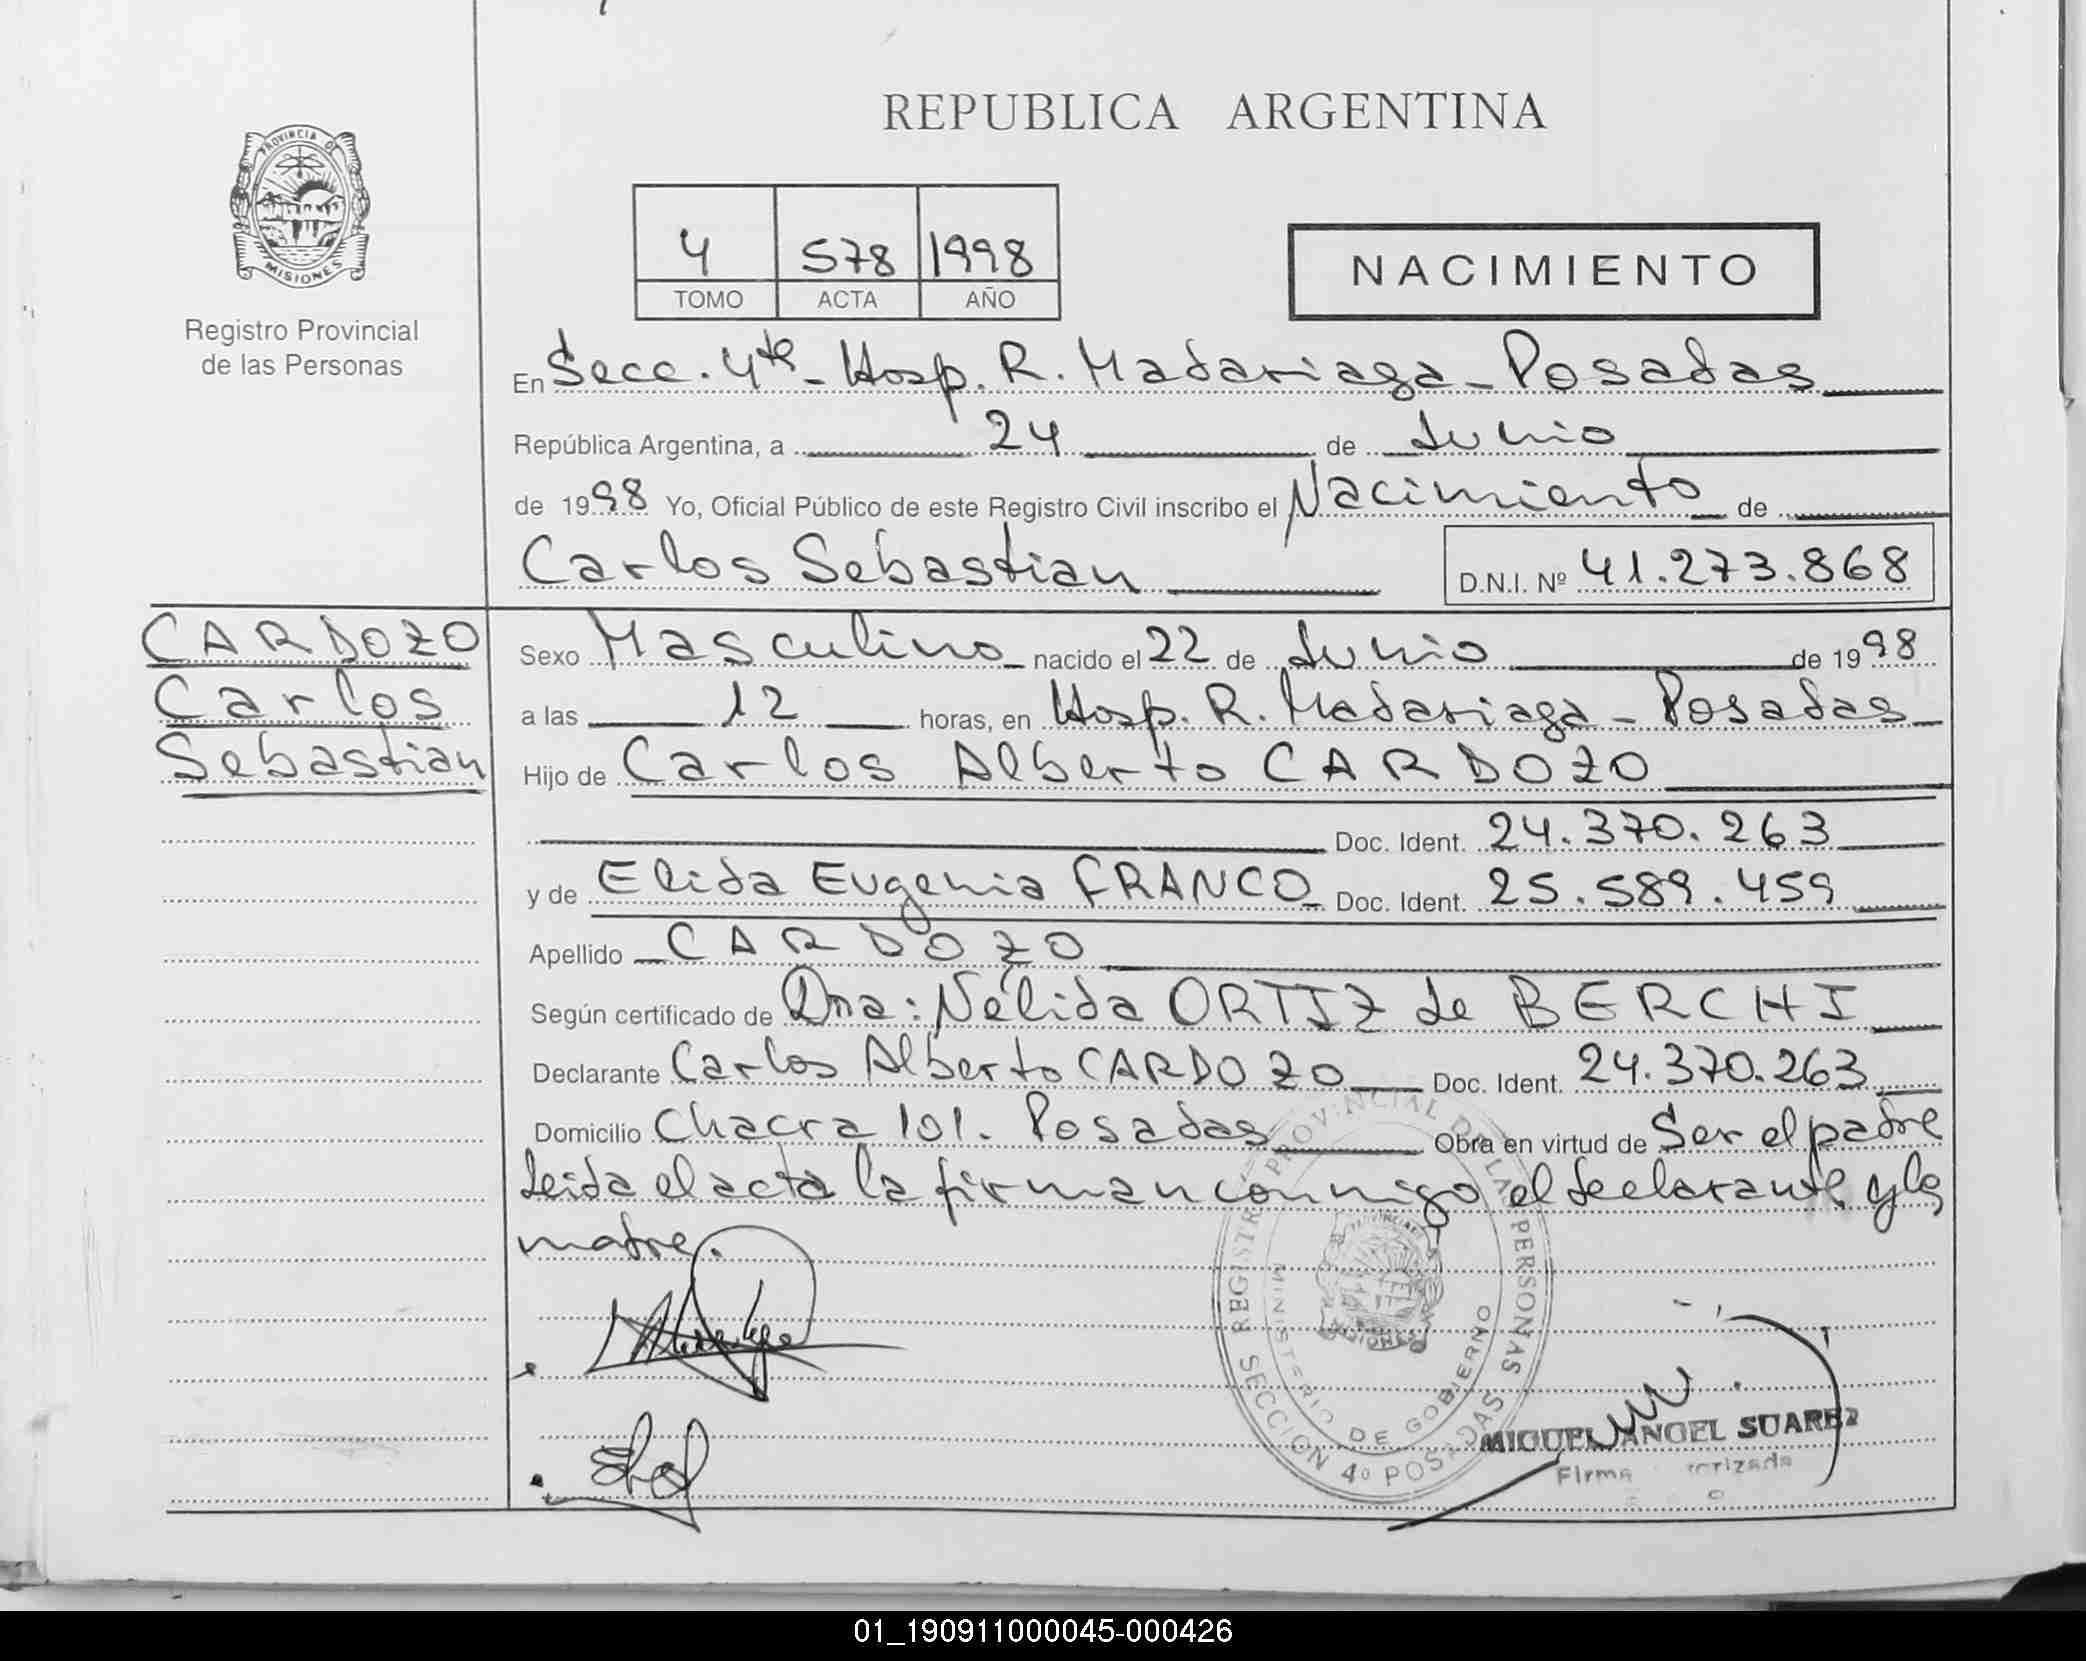 REPUBLICA ARGENTINA
PROVINCIA DE
MISIONES
Registro Provincial
de las Personas
4 578 1998
TOMO ACTA AÑO
NACIMIENTO
En Secc. 4ta - Hosp. R. Madariaga - Posadas
República Argentina, a 24 de Junio
de 1998 Yo, Oficial Público de este Registro Civil inscribo el Nacimiento de
Carlos Sebastian D.N.I. Nº 41.273.868
CARDOZO
Carlos
Sebastian
Sexo Masculino nacido el 22 de Junio de 1998
a las 12 horas, en Hosp. R. Madariaga - Posadas
Hijo de Carlos Alberto CARDOZO
Doc. Ident. 24.370.263
y de Elida Eugenia FRANCO Doc. Ident. 25.589.459
Apellido CARDOZO
Según certificado de Dna: Nélida ORTIZ de BERCHI
Declarante Carlos Alberto CARDOZO Doc. Ident. 24.370.263
Domicilio Chacra 101. Posadas Obra en virtud de Ser el padre
Leida el acta la firman conmigo el declarante y la
madre.
REGISTRO PROVINCIAL DE LAS PERSONAS
MINISTERIO DE GOBIERNO
MISIONES
SECCION 4º POSADAS
MIGUEL ANGEL SUAREZ
Firma
01_190911000045-000426